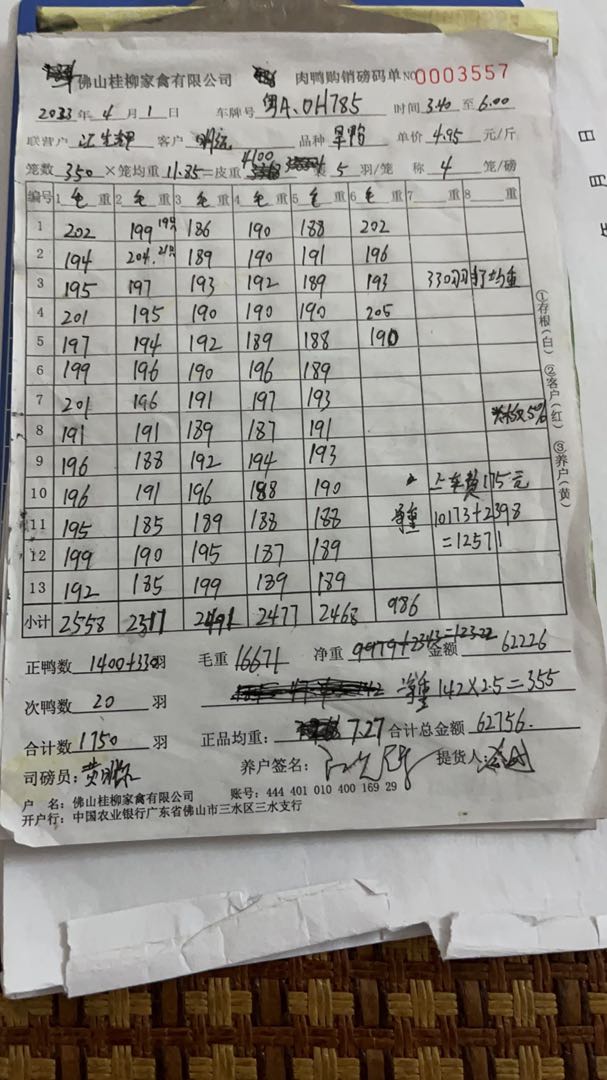 佛山桂柳家禽有限公司 肉鸭购销磅码单 NO 0003557
2023 年 4 月 1 日 车牌号 粤A.0H785 时间 3.40 至 6.00
联营户 客户 品种 单价 4.95 元/斤
笼数 350 ×笼均重 11.85 =皮重 4100 装 5 羽/笼 称 4 笼/磅
编号 1 毛 重 2 毛 重 3 毛 重 4 毛 重 5 毛 重 6 毛 重 7 重 8 重
1 202 199 19只 186 190 188 202
2 194 204. 21只 189 190 191 196
3 195 197 193 192 189 193 330羽打均重
4 201 195 190 190 190 205
5 197 194 192 189 188 190
6 199 196 190 196 189
7 201 196 191 197 193
8 191 191 189 187 191 5%
9 196 188 192 194 193
10 196 191 196 188 190 上车费175元
11 195 185 189 188 188 净重 10173+2398
12 199 190 195 187 189 =12571
13 192 185 199 189 189
小计 2558 2517 2491 2477 2468 986
正鸭数 1400+330 羽 毛重 16671 净重 9979+2343=12322 金额 62226
次鸭数 20 羽 净重 142×2.5=355
合计数 1750 羽 正品均重: 7.27 合计总金额 62756.
司磅员: 养户签名: 提货人:
户 名: 佛山桂柳家禽有限公司 账号: 444 401 010 400 169 29
开户行: 中国农业银行广东省佛山市三水区三水支行
①存根(白) ②客户(红) ③养户(黄)
日
月